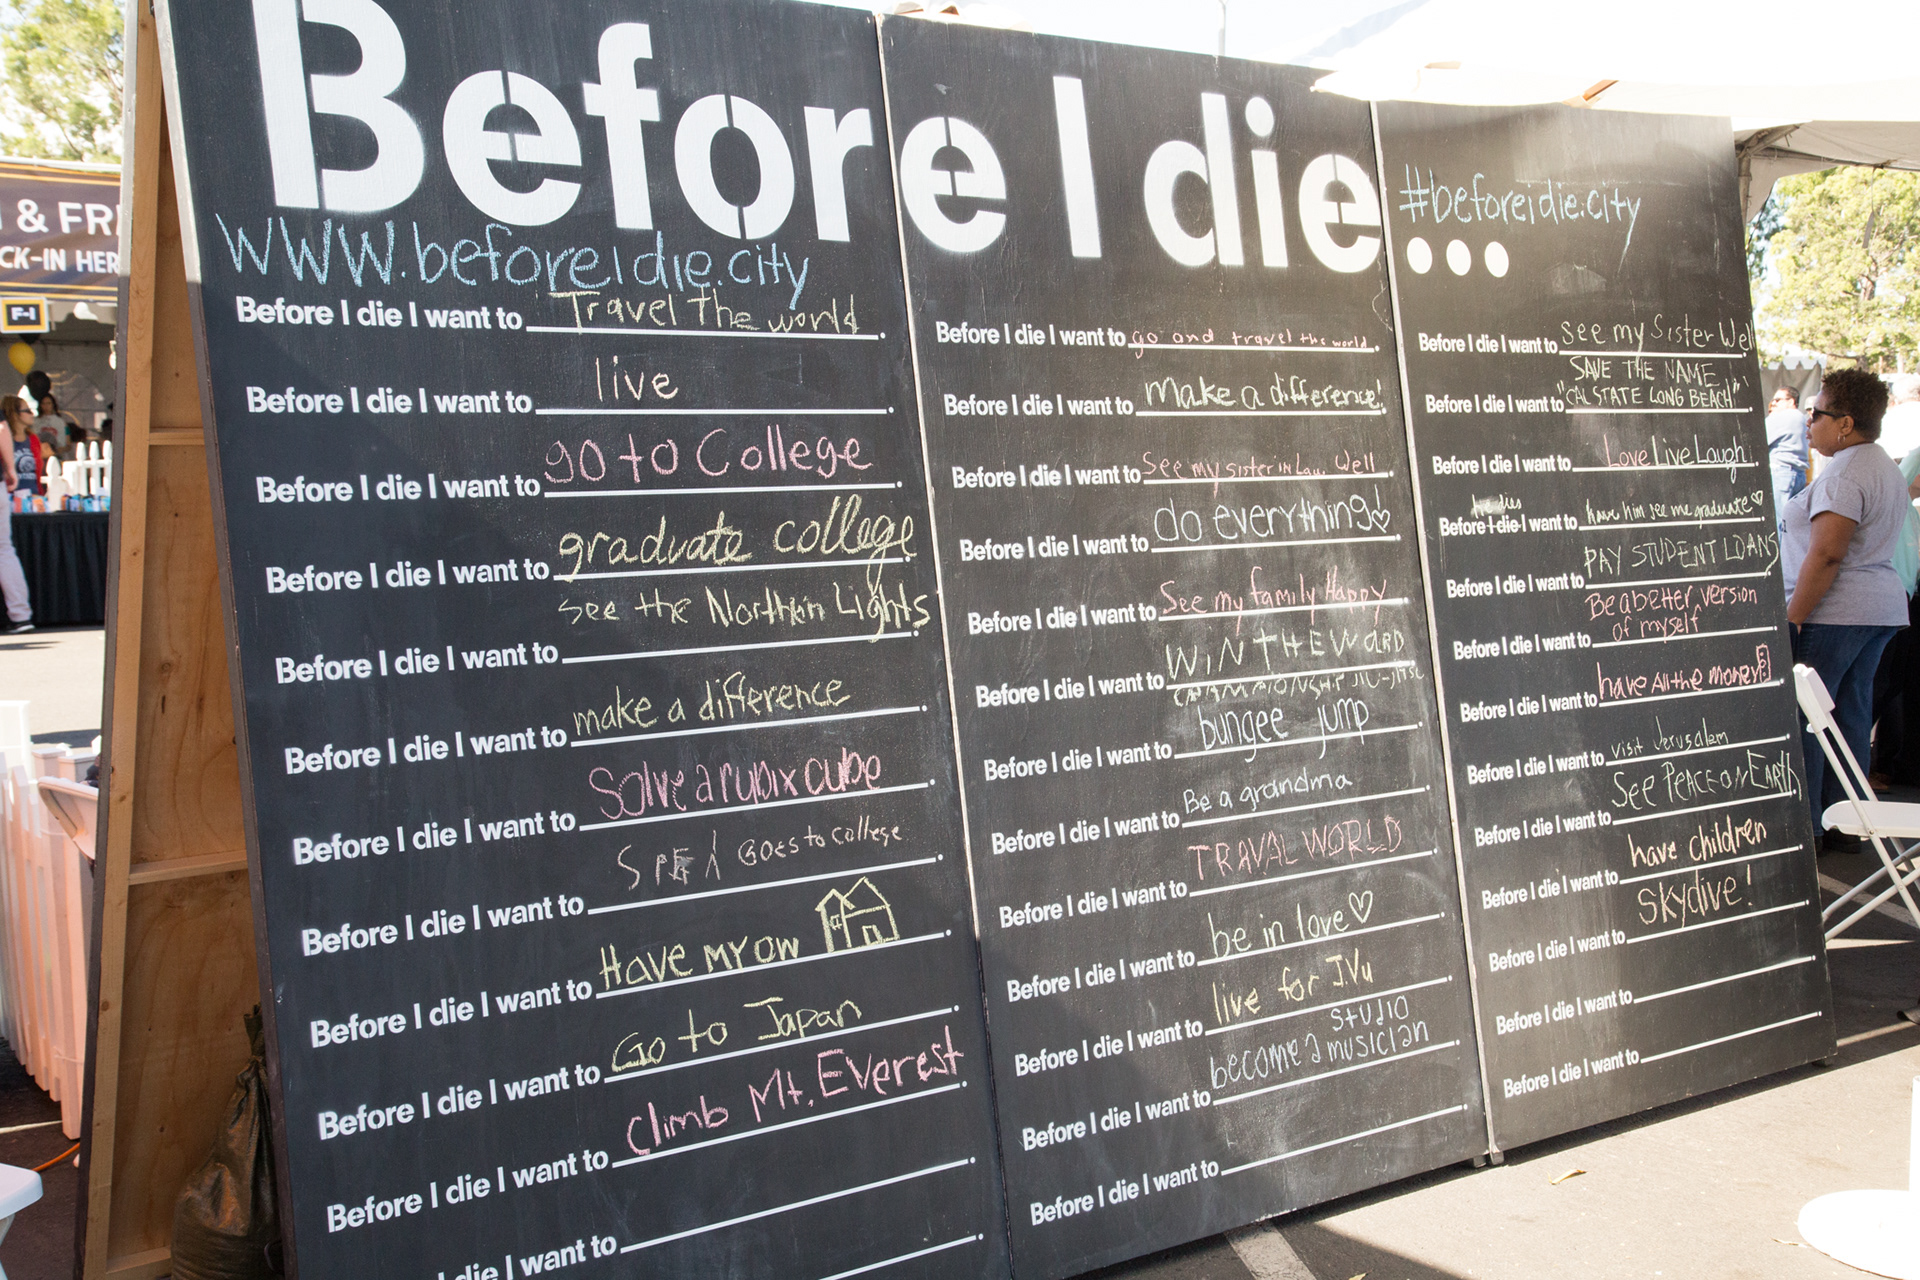 Before I die...
www.beforeidie.city
Before I die I want to Travel The world.
Before I die I want to live.
Before I die I want to go to College.
Before I die I want to graduate college.
see the Northern Lights
Before I die I want to.
Before I die I want to make a difference.
Before I die I want to Solve a rubix cube.
Before I die I want to Goes to college.
Before I die I want to Have my ow.
Before I die I want to Go to Japan.
Before I die I want to Climb Mt. Everest.
Before I die I want to.
die I want to.
Before I die I want to go and travel the world.
Before I die I want to Make a difference!.
Before I die I want to See my sister in Law Well.
Before I die I want to do everything!♡.
Before I die I want to See my family Happy.
Before I die I want to WIN THE WORLD
CHAMPIONSHIP JIU-JITSU
Before I die I want to bungee jump.
Before I die I want to Be a grandma.
Before I die I want to TRAVAL WORLD.
Before I die I want to be in love♡.
Before I die I want to live for J.Vu.
studio
Before I die I want to become a musician.
Before I die I want to.
#beforeidie.city
Before I die I want to see my Sister Well
SAVE THE NAME
Before I die I want to "CAL STATE LONG BEACH!".
Before I die I want to Love Live Laugh.
he dies
Before I die I want to have him see me graduate♡.
Before I die I want to PAY STUDENT LOANS.
Be a better version
Before I die I want to of myself.
Before I die I want to have All the money!.
Before I die I want to visit Jerusalem.
Before I die I want to See PEACE ON EARTH.
Before I die I want to have children.
Before I die I want to SKYdive!.
Before I die I want to.
Before I die I want to.
& FR
CK-IN HER
F-I